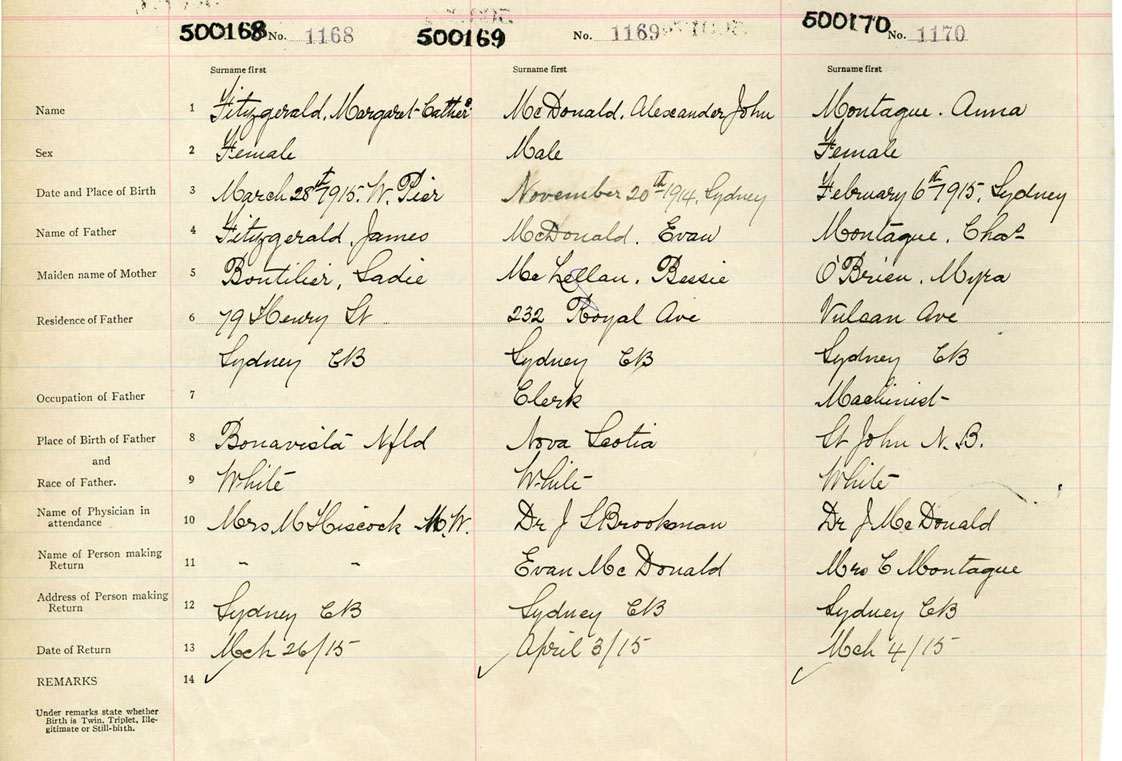 500168 No. 1168 500169 No. 1169 500170 No. 1170
Surname first Surname first Surname first
Name 1 Fitzgerald, Margaret Cathe McDonald, Alexander John Montague. Anna
Sex 2 Female Male Female
Date and Place of Birth 3 March 28th 1915. W. Pier November 20th 1914, Sydney February 6th 1915, Sydney
Name of Father 4 Fitzgerald, James McDonald, Evan Montague, Chas
Maiden name of Mother 5 Bontilier, Sadie McLellan, Bessie O'Brien, Myra
Residence of Father 6 79 Henry St 232 Royal Ave Vulcan Ave
Sydney CB Sydney CB Sydney CB
Occupation of Father 7 Clerk Machinist
Place of Birth of Father 8 Bonavista Nfld Nova Scotia St John N.B.
and
Race of Father. 9 White White White
Name of Physician in
attendance 10 Mrs M Hiscock M.W. Dr J S Brookman Dr J McDonald
Name of Person making
Return 11 " " Evan McDonald Mrs C Montague
Address of Person making
Return 12 Sydney CB Sydney CB Sydney CB
Date of Return 13 Mch 26/15 April 3/15 Mch 4/15
REMARKS 14
Under remarks state whether
Birth is Twin, Triplet, Ille-
gitimate or Still-birth.